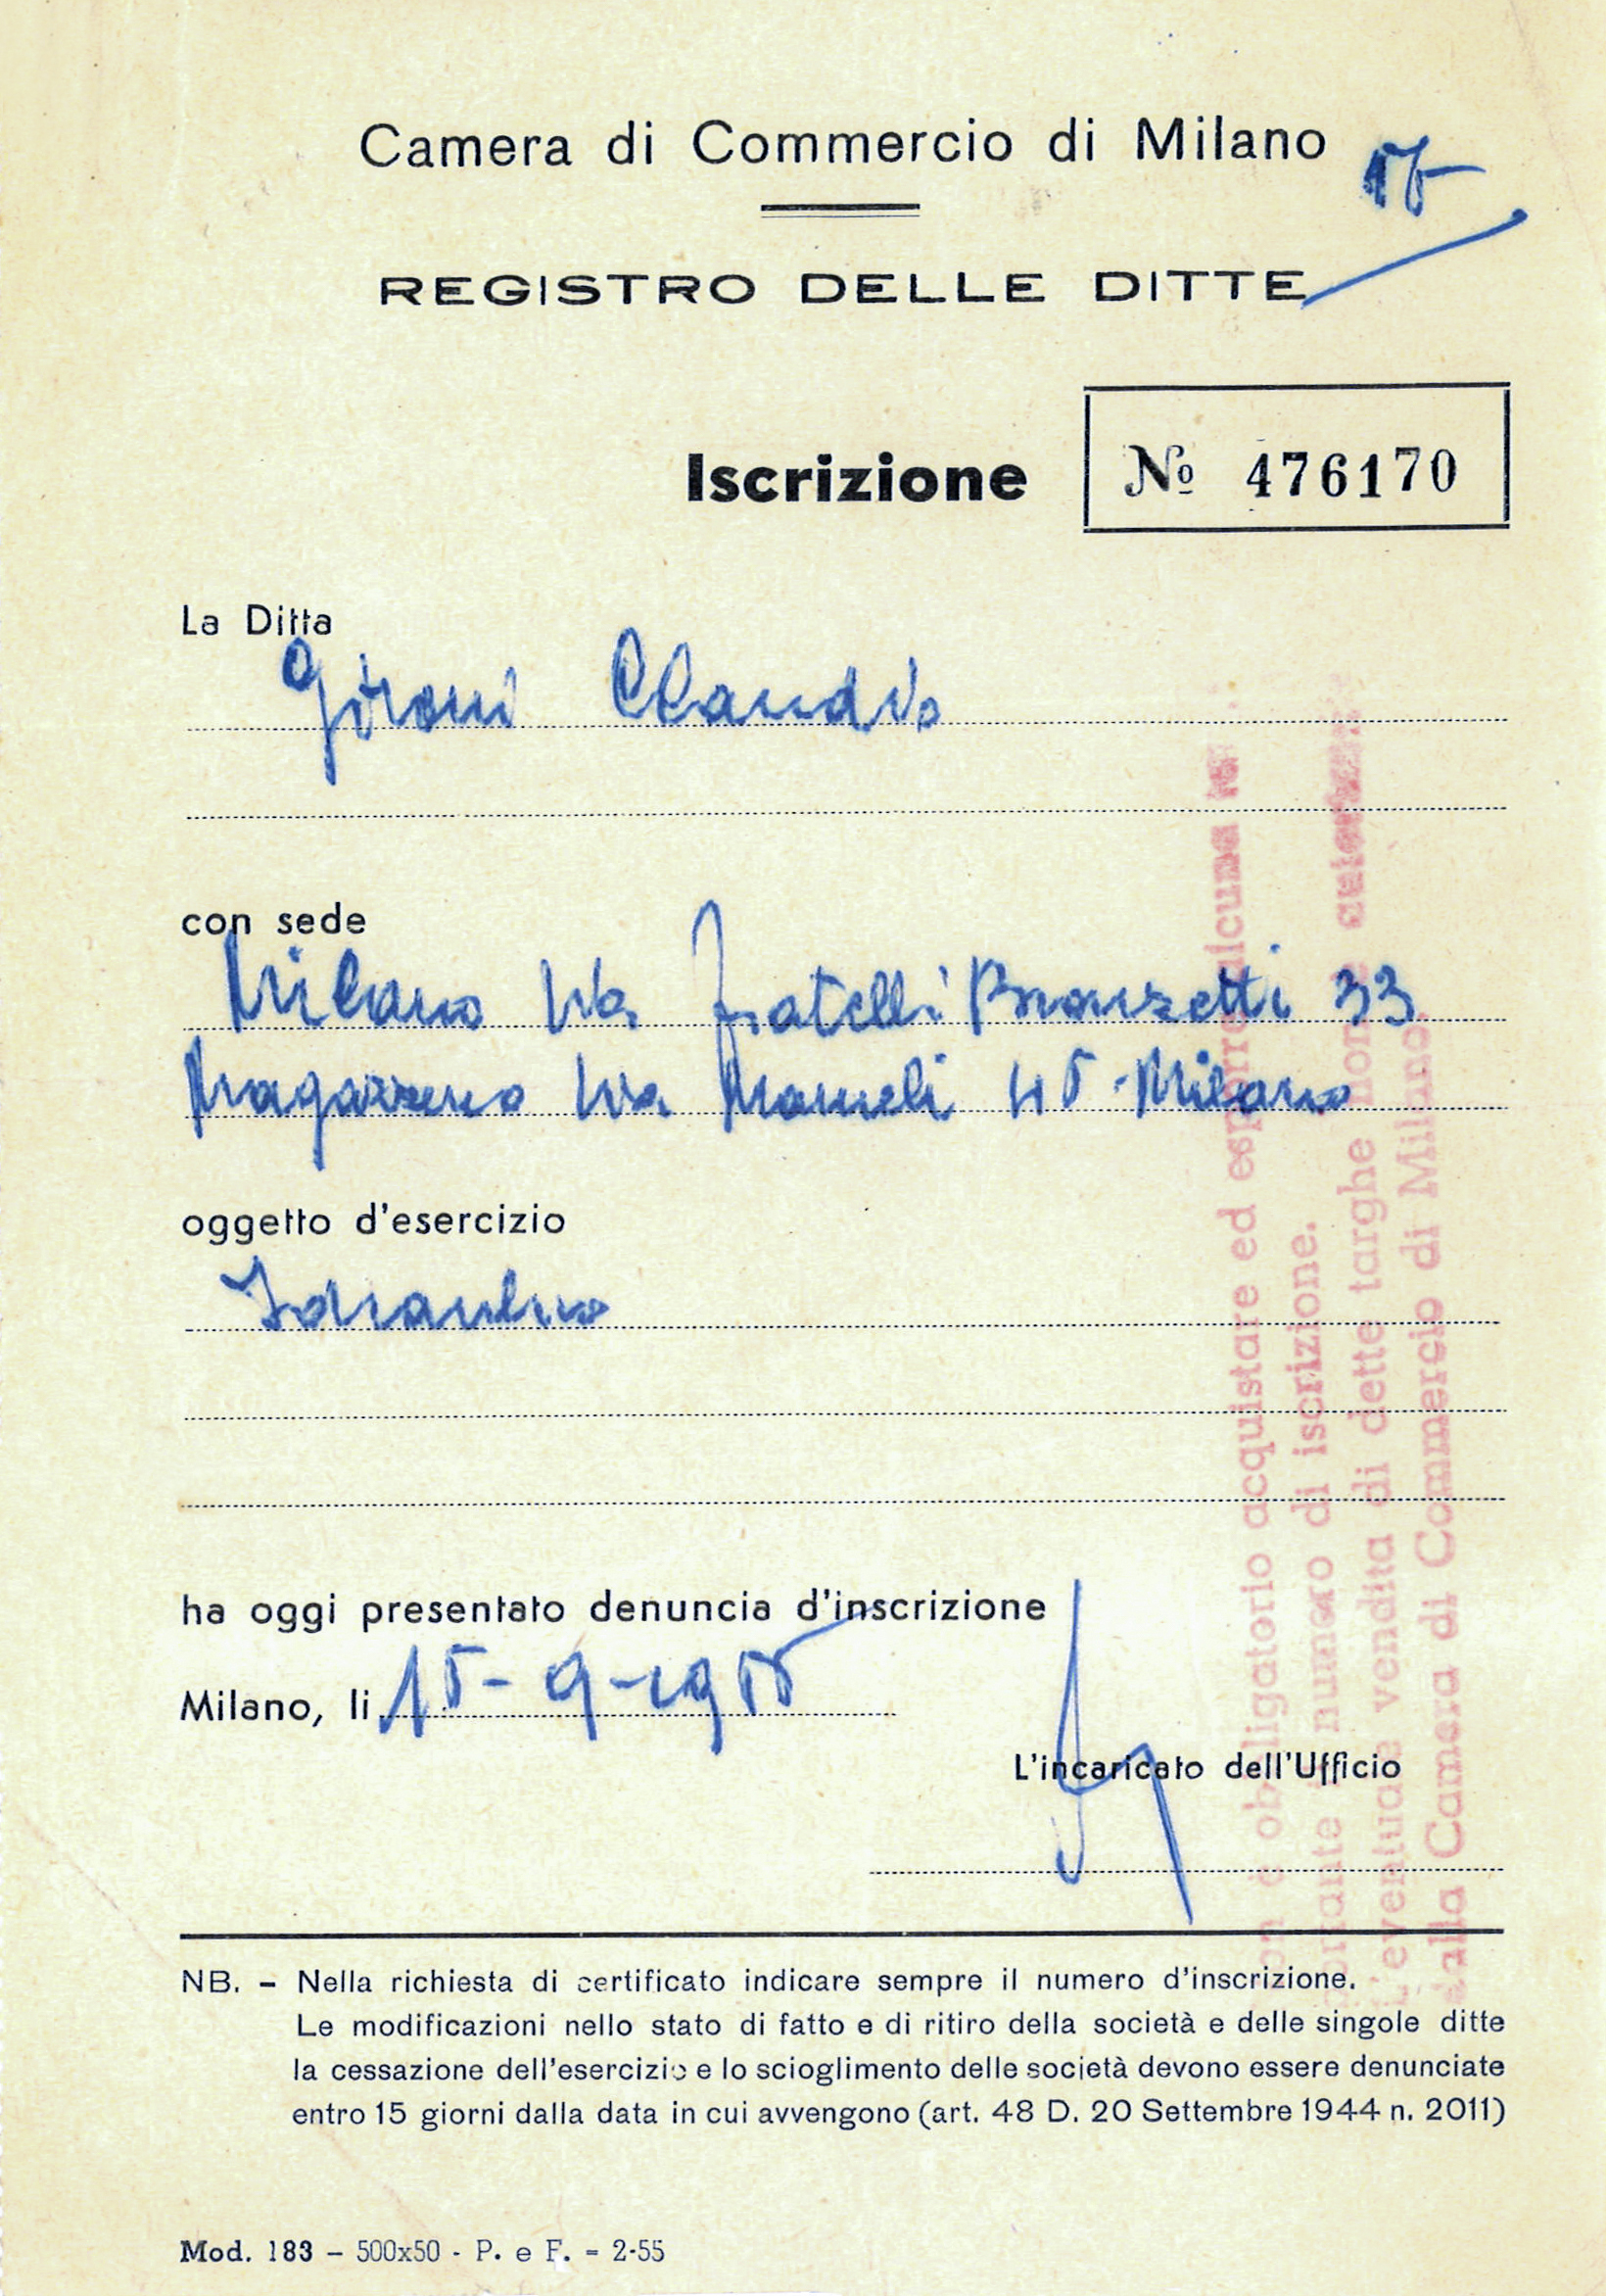 Camera di Commercio di Milano
15
REGISTRO DELLE DITTE
Iscrizione
№ 476170
La Ditta
Gironi Claudio
con sede
Milano Via fratelli Bronzetti 33
Magazzeno Via Mameli 45 - Milano
oggetto d'esercizio
Idraulico
ha oggi presentato denuncia d'inscrizione
Milano, li 15-9-1955
L'incaricato dell'Ufficio
NB. – Nella richiesta di certificato indicare sempre il numero d'inscrizione.
Le modificazioni nello stato di fatto e di ritiro della società e delle singole ditte
la cessazione dell'esercizio e lo scioglimento delle società devono essere denunciate
entro 15 giorni dalla data in cui avvengono (art. 48 D. 20 Settembre 1944 n. 2011)
Mod. 183 – 500x50 - P. e F. – 2-55
è obbligatorio acquistare ed esporre alcuna
numero di iscrizione.
L'eventuale vendita di dette targhe non è
dalla Camera di Commercio di Milano.